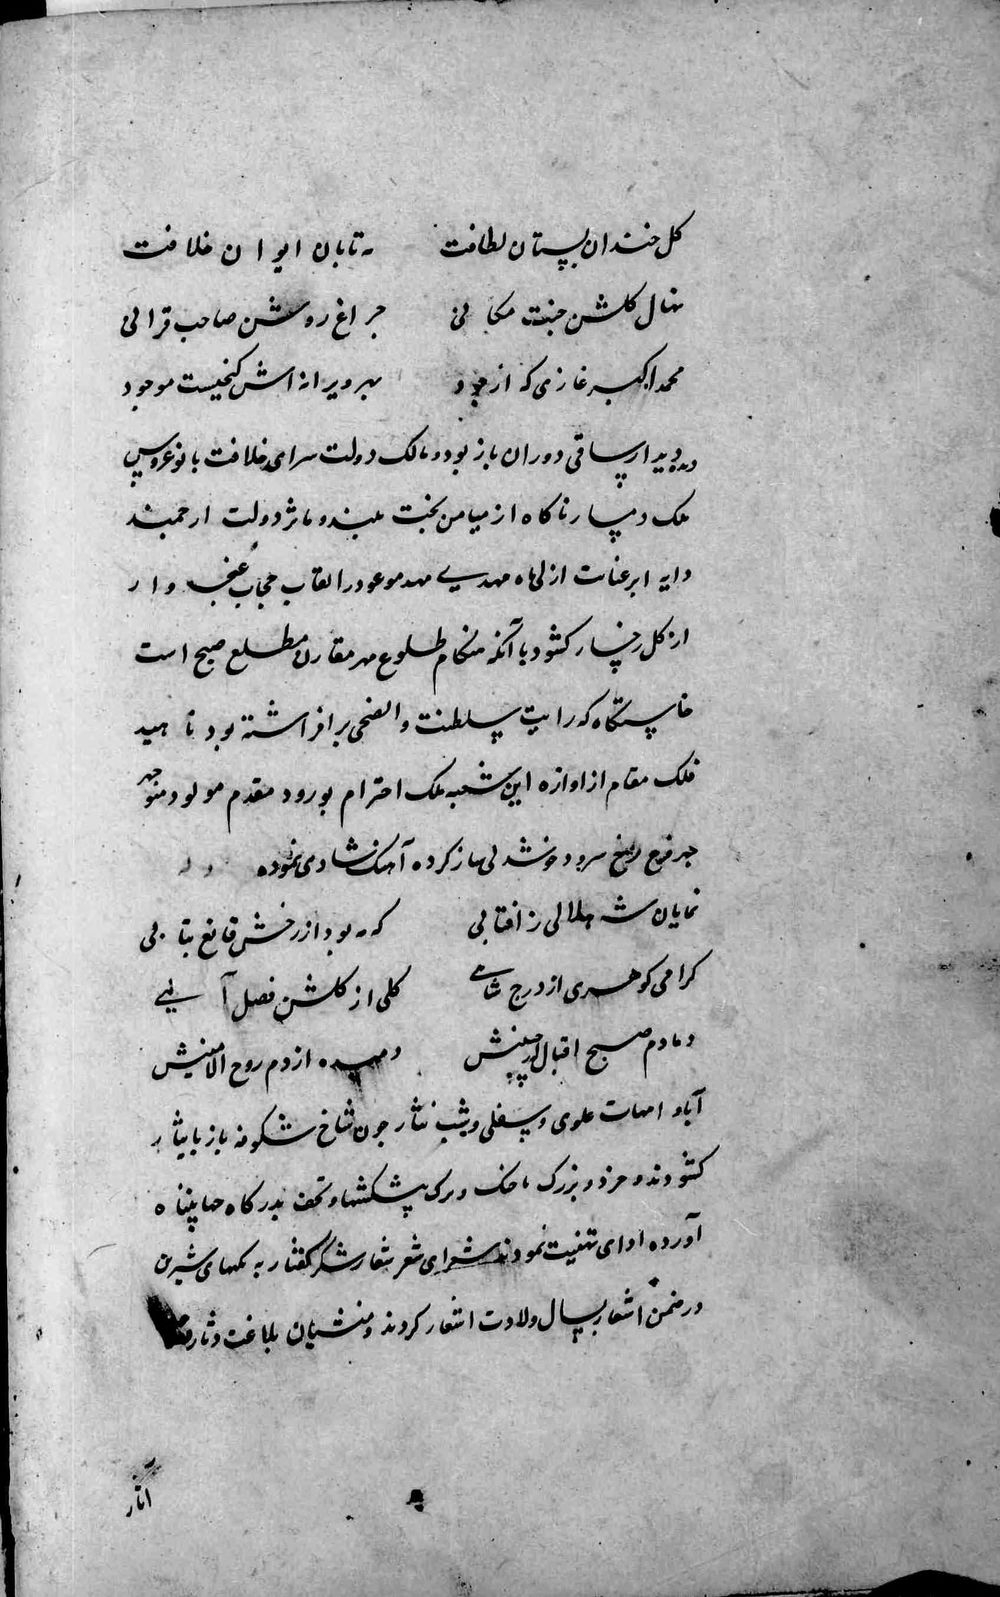 کل خندان بستان لطافت مه تابان ایوان خلافت
نهال کلشن جنت مکانی چراغ روشن صاحب قرانی
محمد اکبر غازی که از جود بهر ویرانه اش کنجیست موجود
دیده بدیدار ساقی دوران باز بود و مالک دولت سرای خلافت با نوعروس
ملک دمساز ناکاه از میامن بخت بلند و ماثر دولت ارجمند
دایه ابر عنایت ازلی ماه مهدی مهد موعود را نقاب حجاب غنچه وار
از کل رخسار کشود با آنکه هنکام طلوع مهر مقارن مطلع صبح است
خاستکاه که رایت سلطنت والضحی برافراشته بود ناهید
فلک مقام از اوازه این شعبه ملک احترام بورود مقدم مولود منوچهر
چهر فرخ رخ سرود خوشدلی ساز کرده آهنک شادی نموده
نمایان شد هلالی ز افتابی که مه بود از رخش قانع بتابی
کرامی کوهری از درج شاهی کلی از کلشن فضل آلهی
دمادم صبح اقبال از جبینش دمیده از دم روح الامینش
آباء و امهات علوی و سفلی وشب نثار چون شاخ شکوفه باز بایثار
کشودند و خرد و بزرک با خنک و برک پیشکشها و تحف بدرکاه جهاپناه
آورده ادای تهنیت نمودند شعرای شعر شعار شکر کفتار به نکتهای شیرین
در ضمن اشعار بسال ولادت اشعار کردند و منشیان بلاغت دثار
آثار